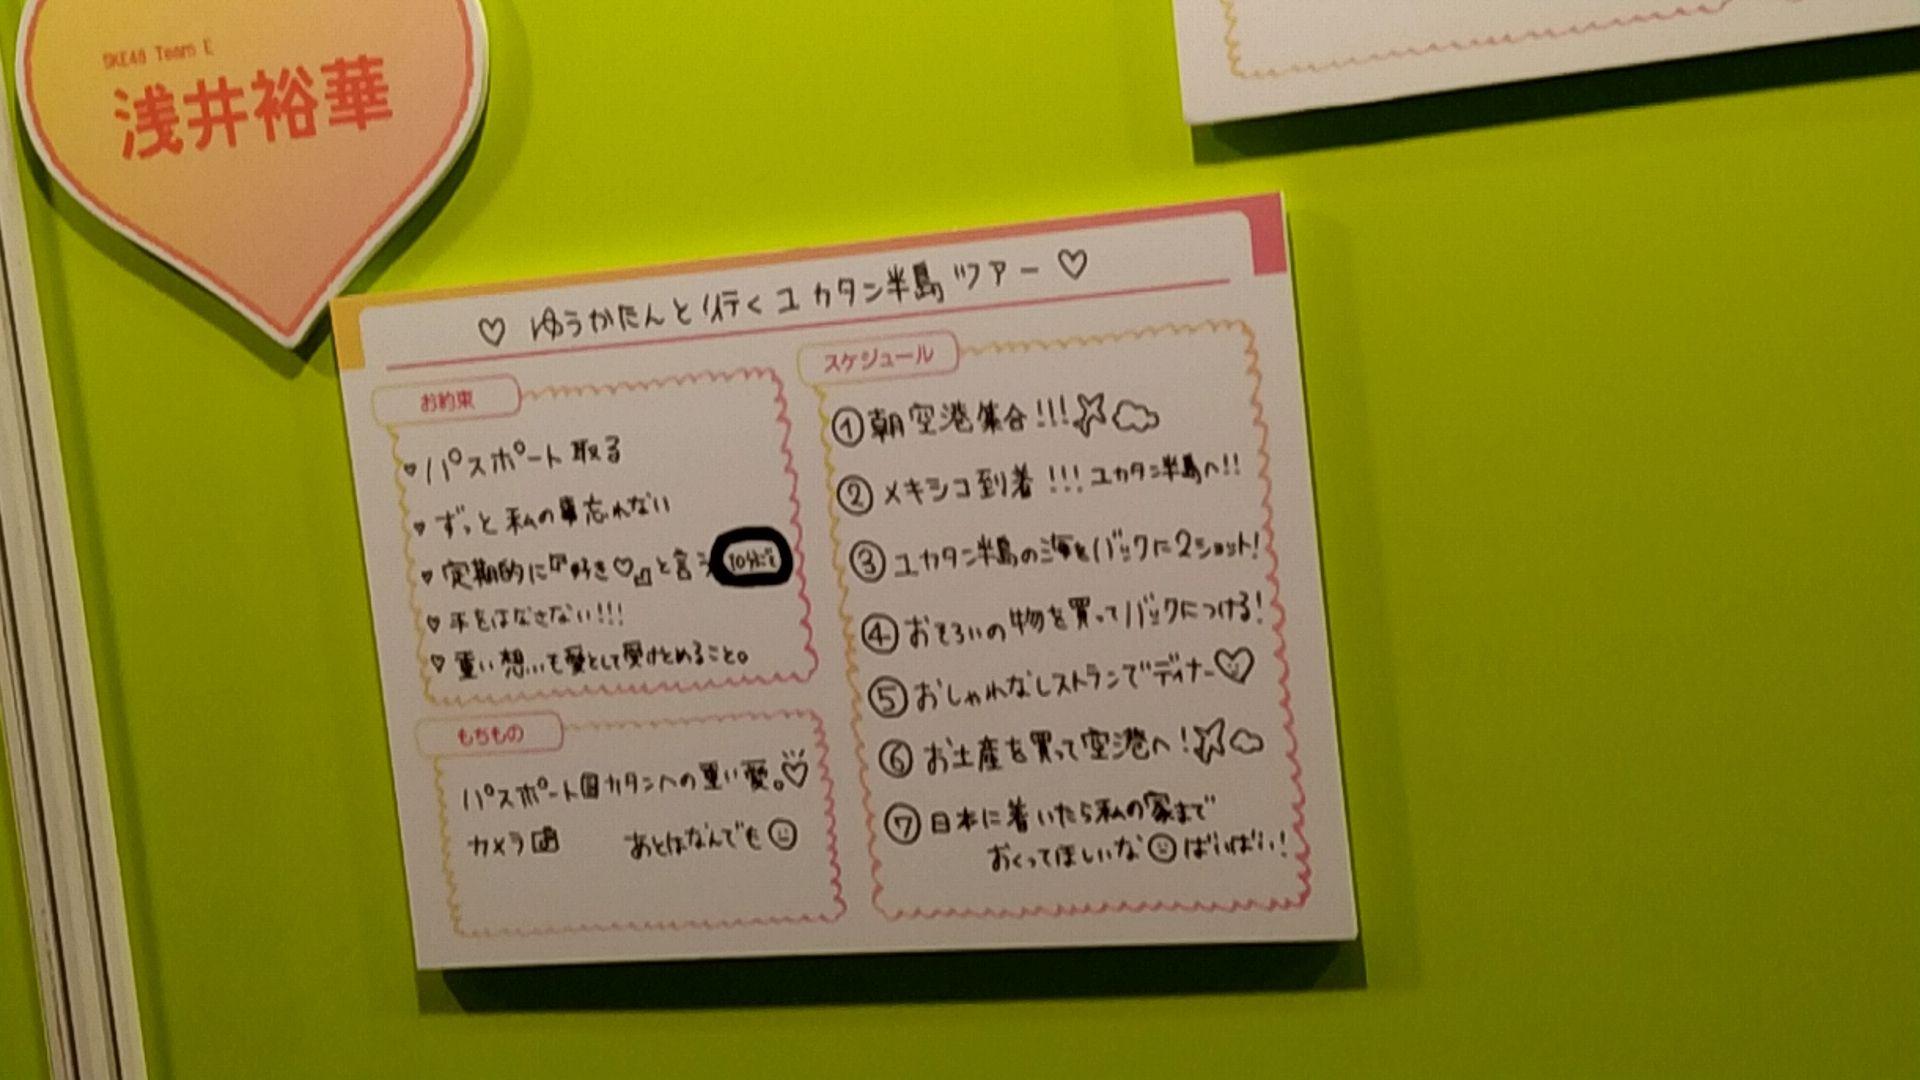 SKE48 Team E
浅井裕華
♡ ゆうかたんと行くユカタン半島ツアー ♡
お約束
♡パスポート取る
♡ずっと私の事忘れない
♡定期的に『好き♡』と言う 10分ごと
♡手をはなさない!!!
♡重い想いも愛として受けとめること。
もちもの
パスポート カタンへの重い愛。♡
カメラ あとはなんでも
スケジュール
①朝空港集合!!!
②メキシコ到着!!!ユカタン半島へ!!
③ユカタン半島の海をバックに2ショット!
④おそろいの物を買ってバックにつける!
⑤おしゃれなレストランでディナー♡
⑥お土産を買って空港へ!
⑦日本に着いたら私の家まで
おくってほしいな ばいばい!